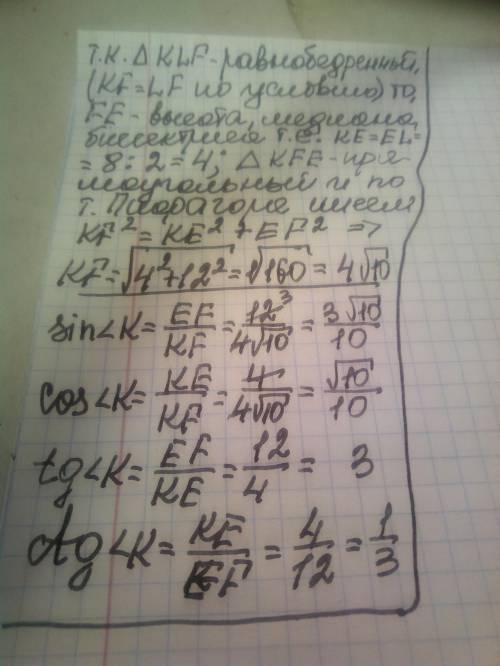 Т.К. △ KLF-равнобедренный,
(KF=LF по условию) то,
FE-высота, медиана,
биссектриса т.е. KE=EL=
= 8:2=4; △ KFE-пря-
моугольный и по
т. Пифагора имеем
KF² = KE² + EF² =>
KF=√4²+12² = √160 = 4√10
sin∠K= EF/KF = 12³/4√10 = 3√10/10
cos∠K= KE/KF = 4/4√10 = √10/10
tg∠K= EF/KE = 12/4 = 3
ctg∠K= KE/EF = 4/12 = 1/3